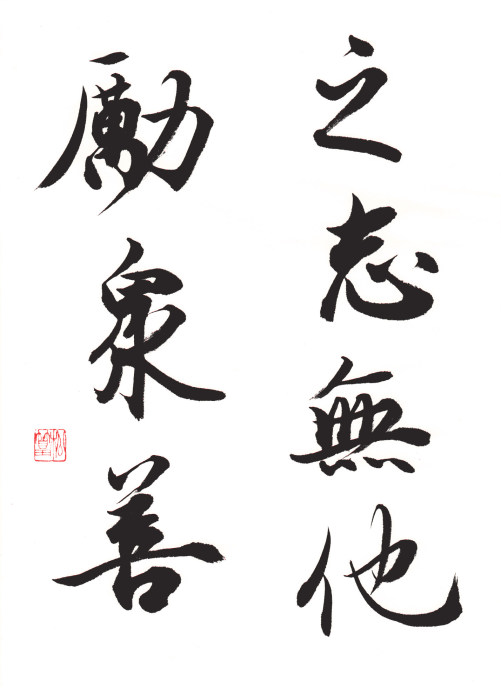 之志無他
勵衆善